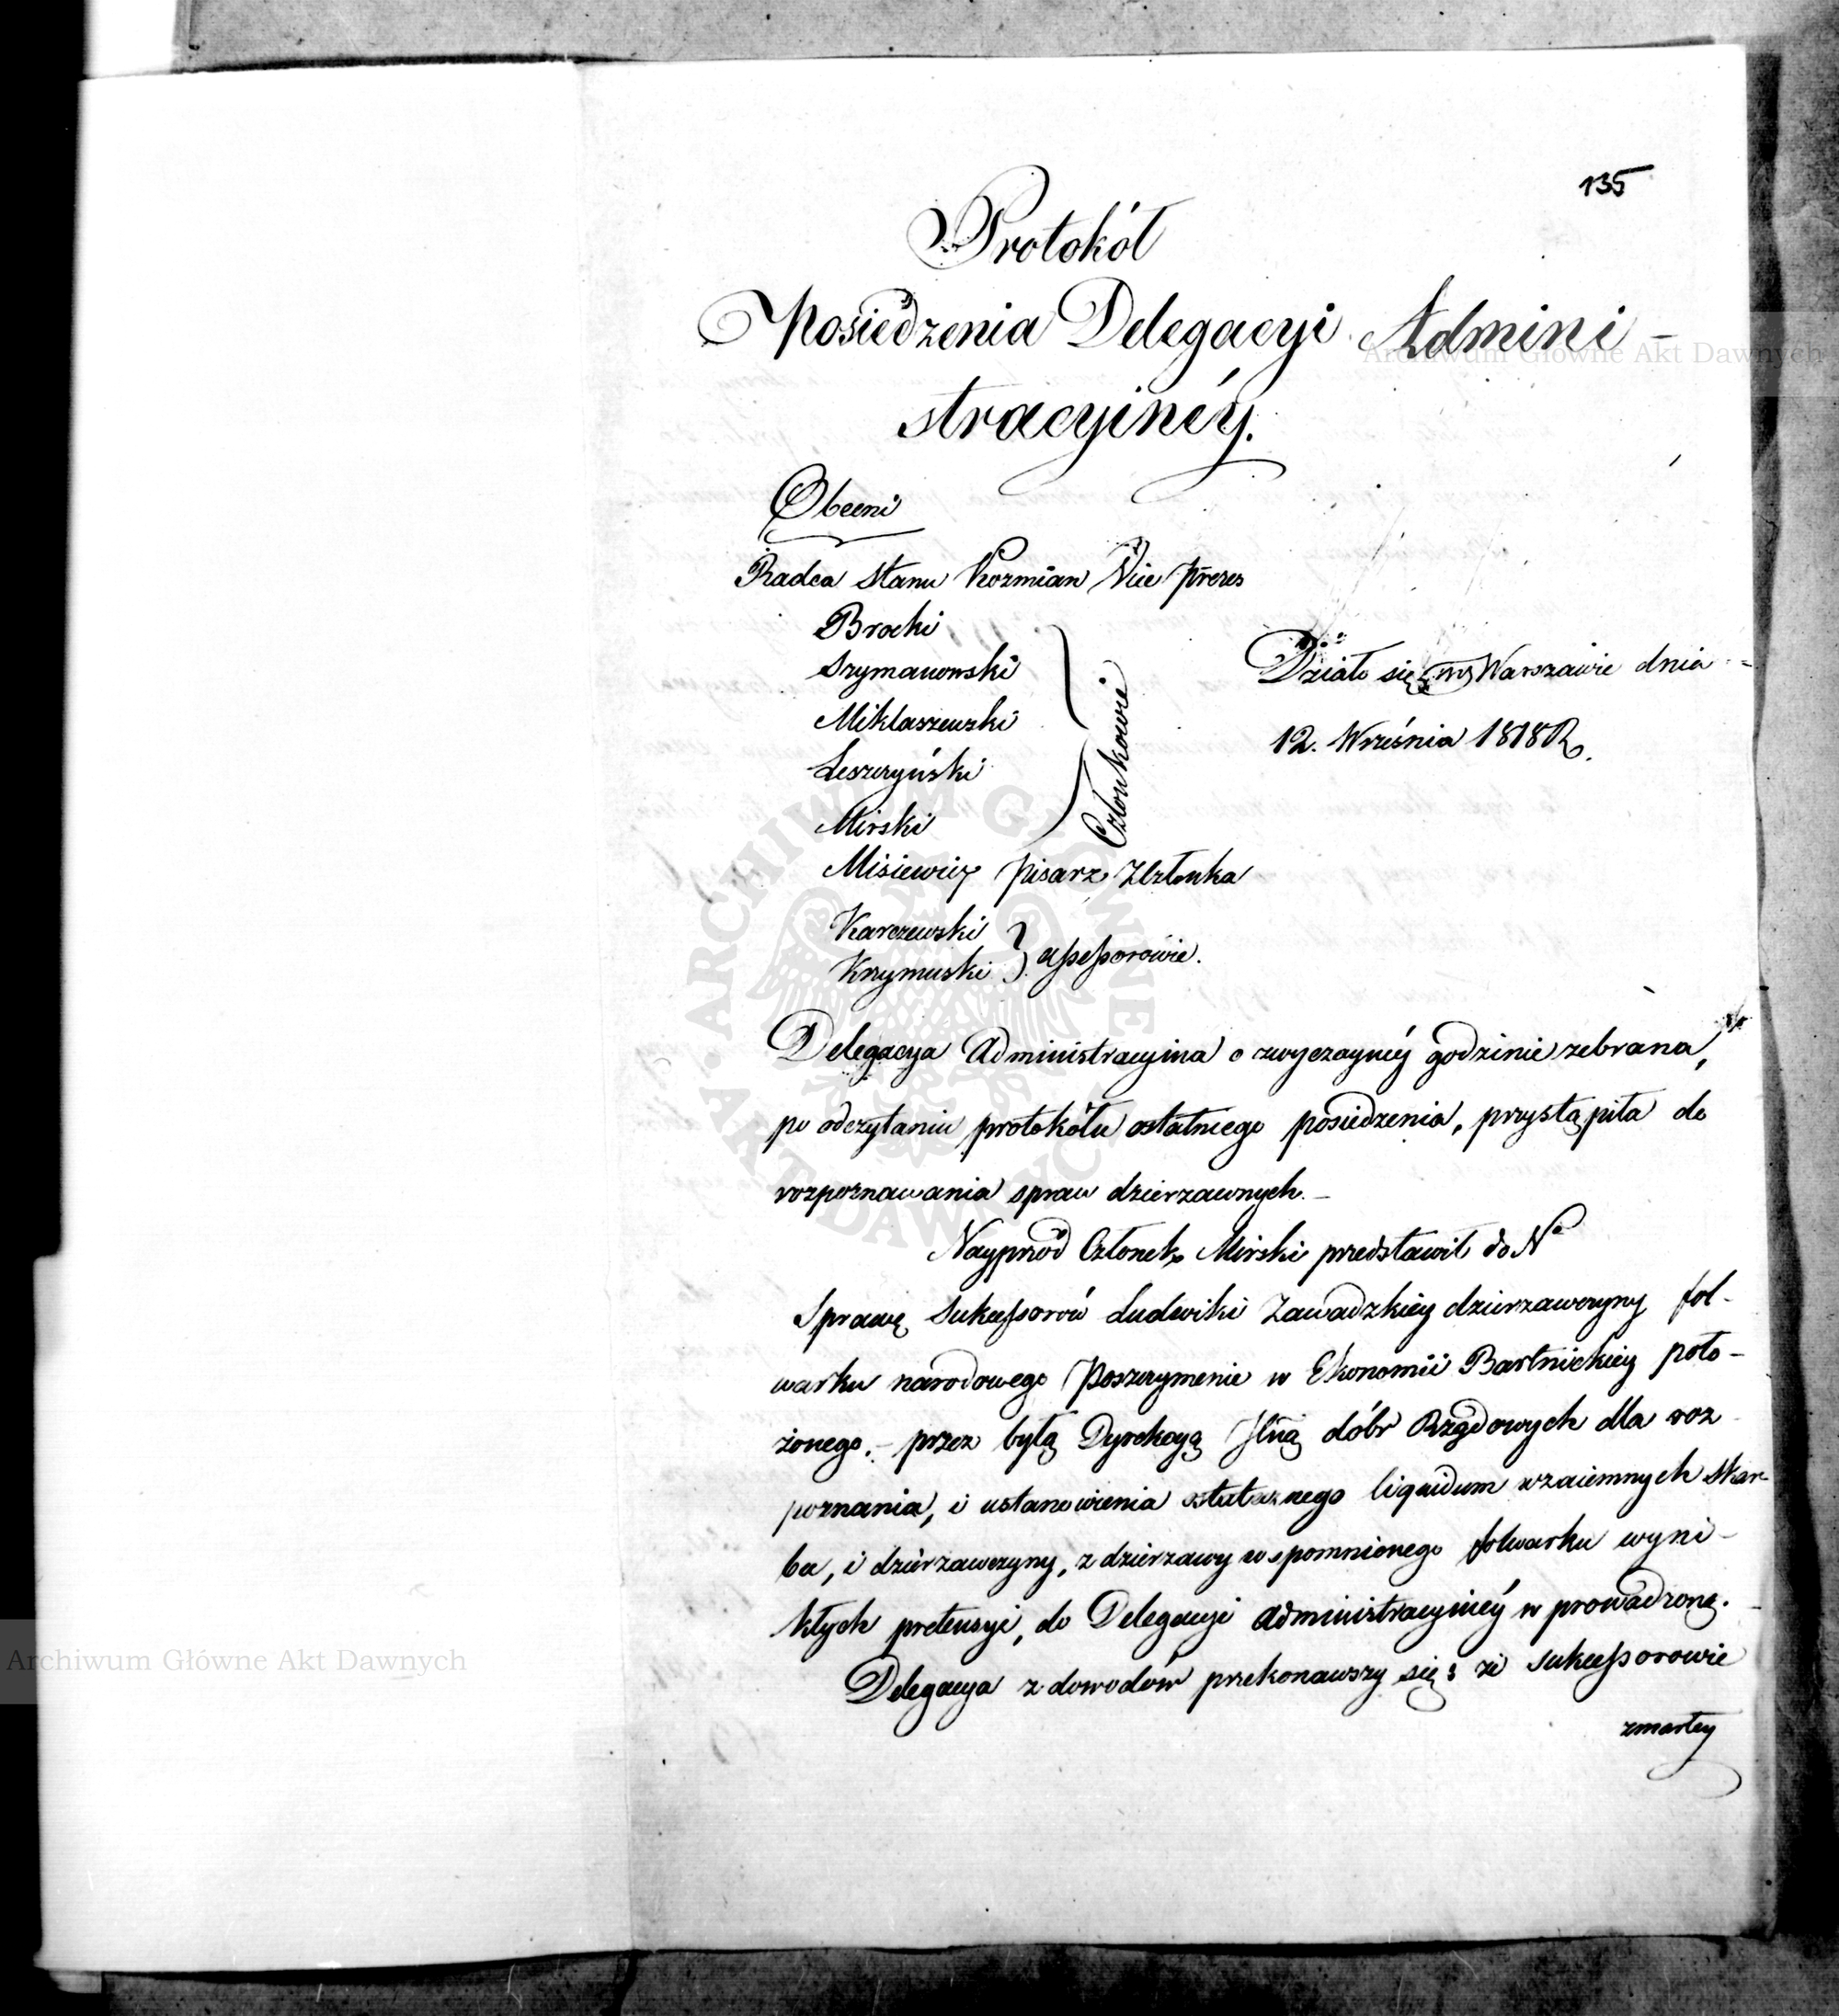 135
Protokół
Posiedzenia Delegacyi Admini-
stracyinéy.
Obecni
Radca Stanu Kozmian Vice Prezes
Brocki
Szymanowski
Miklaszewski
Leszczyński
Mirski
Członkowie
Działo się w Warszawie dnia
12. Września 1818 R.
Misiewicz Pisarz Członka
Karczewski
Krzymuski
assessorowie.
Delegacya Administracyina o zwyczaynéy godzinie zebrana,
po odczytaniu protokółu ostatniego posiedzenia, przystąpiła do
rozpoznawania spraw dzierzawnych.—
Nayprzód Członek Mirski przedstawił do No
Sprawę Sukcessorów Ludwiki Zawadzkiey dzierzawczyny fol-
warku narodowego Poszczymenie w Ekonomii Bartnickiey poło-
żonego.- przez byłą Dyrekcyą Jlną dóbr Rządowych dla roz-
poznania, i ustanowienia ostatecznego liquidum wzaiemnych Skar-
bu, i dzierzawczyny, z dzierzawy wspomnionego folwarku wyni-
kłych pretensyi, do Delegacyi administracyinéy wprowadzoną.
Delegacya z dowodów przekonawszy się: że Sukcessorowie
zmarłey
Archiwum Główne Akt Dawnych
Archiwum Główne Akt Dawnych
ARCHIWUM GŁÓWNE AKT DAWNYCH